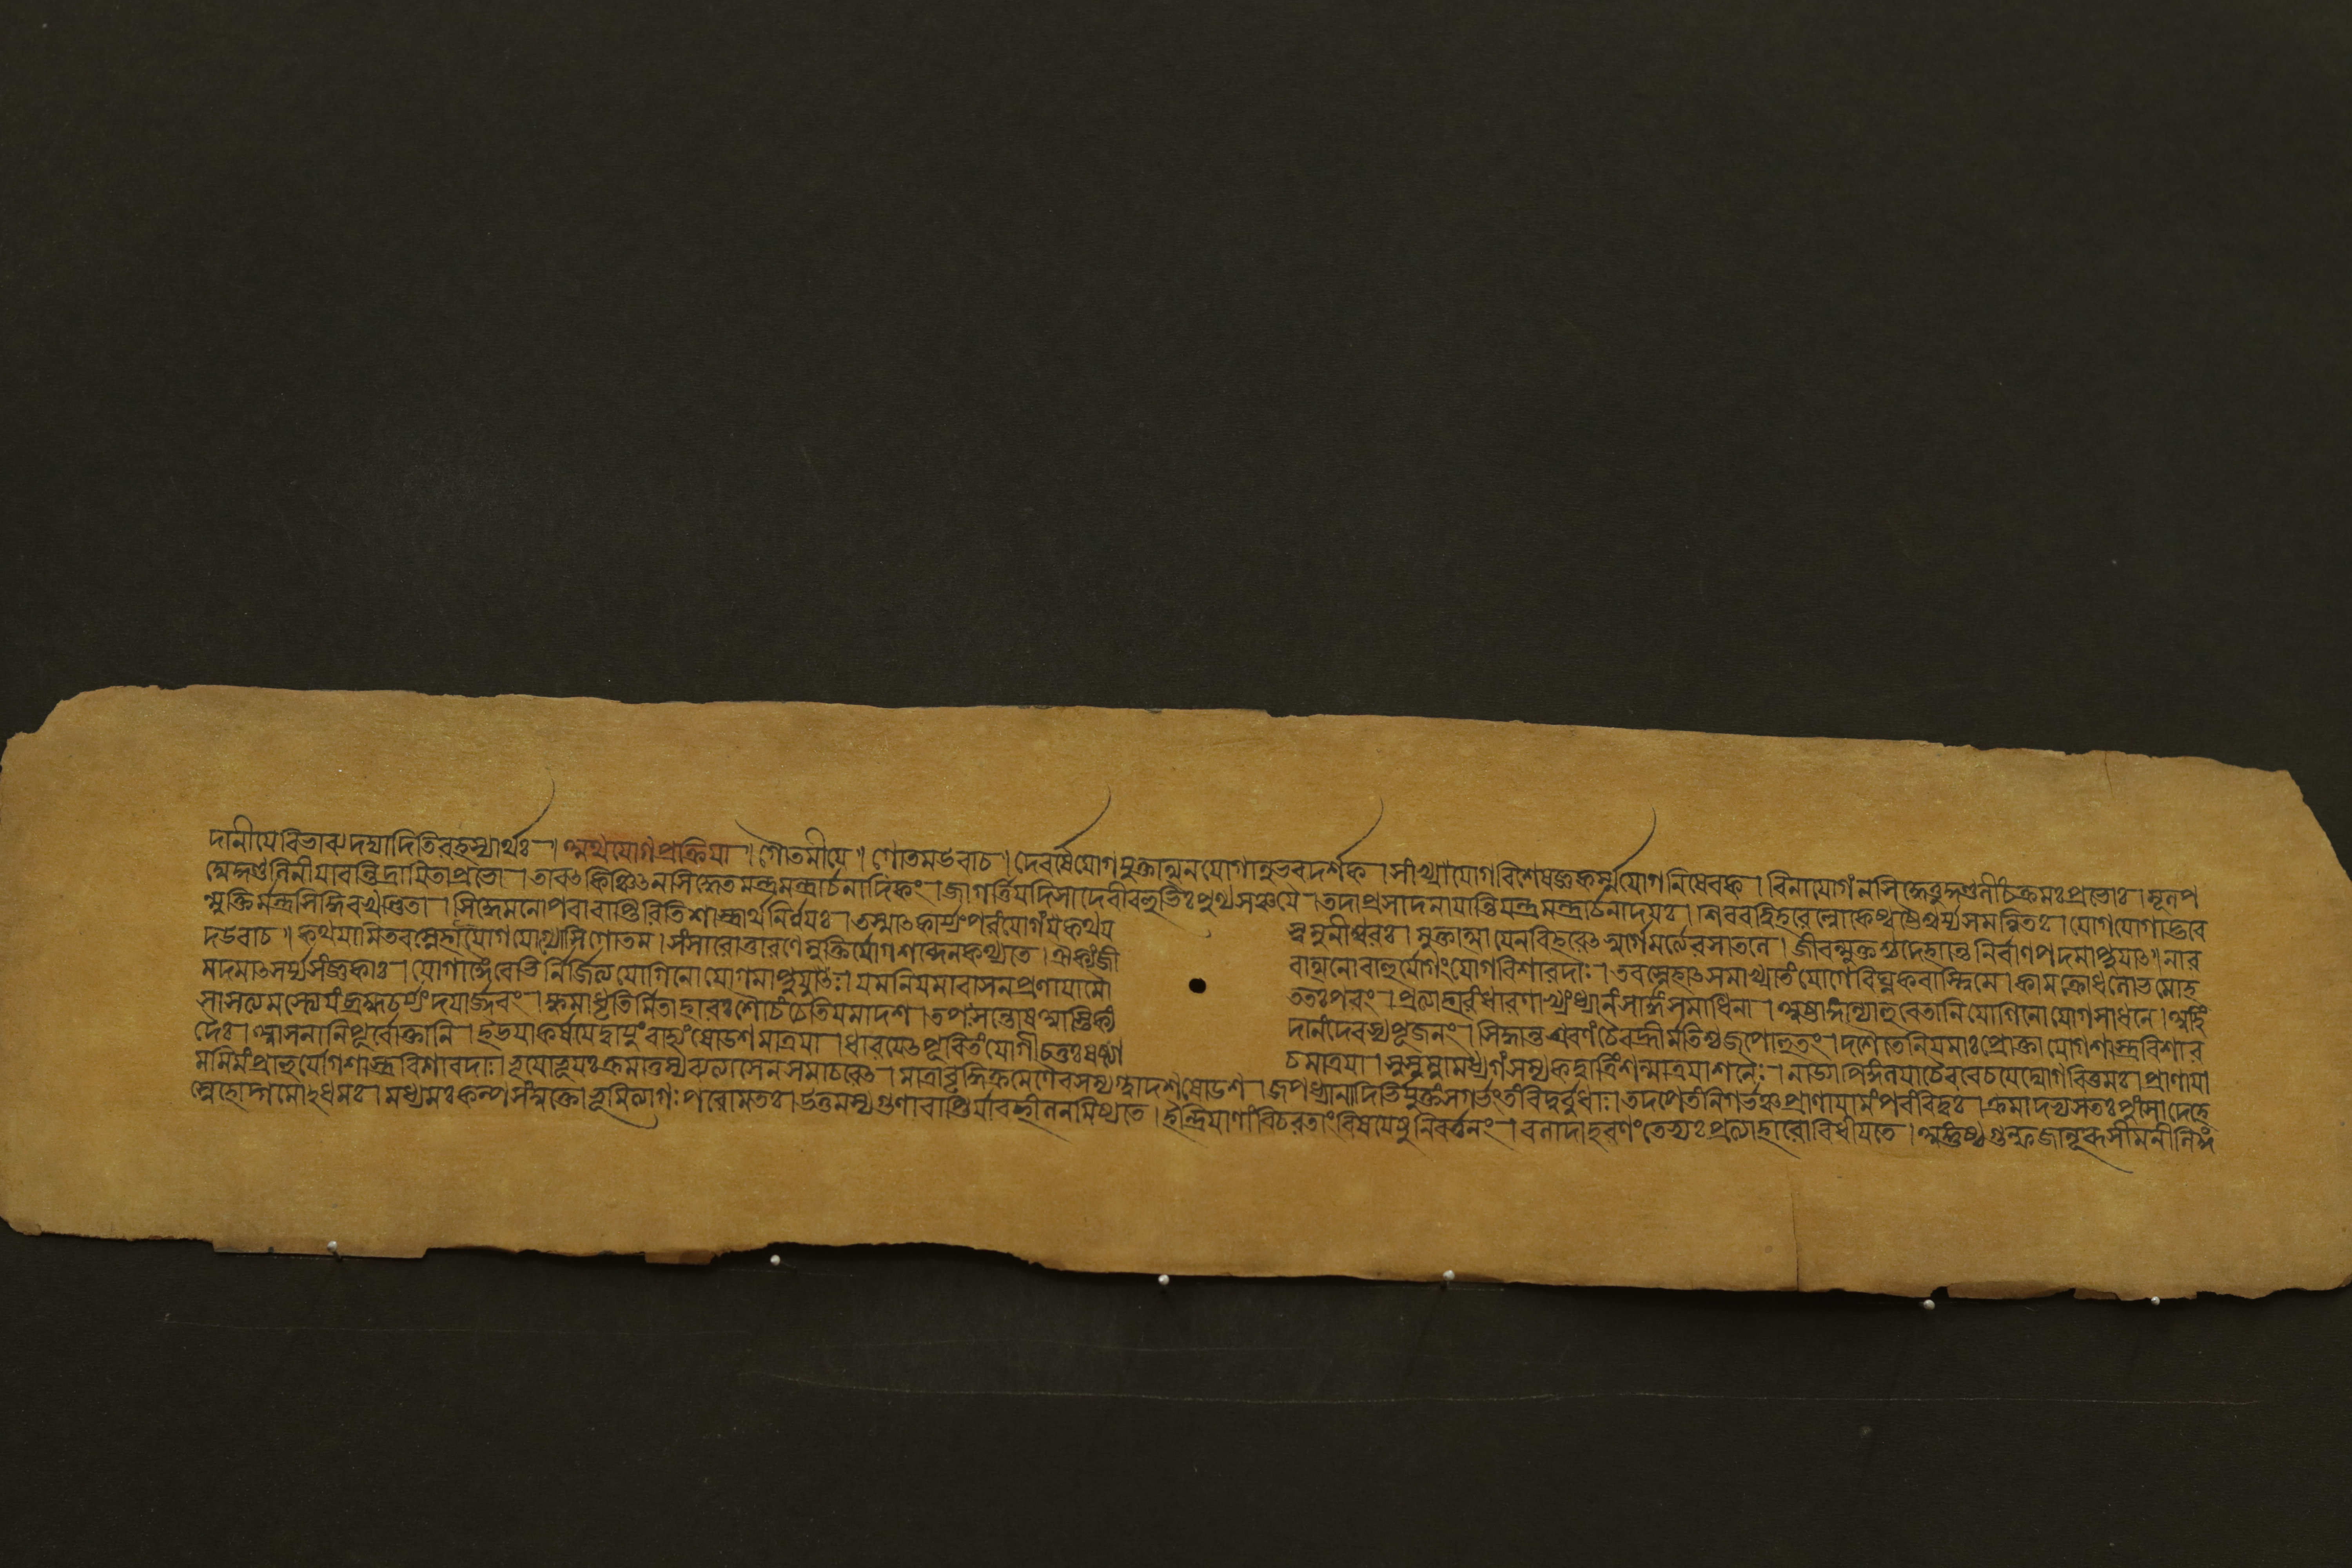 দানীয়ে বিভাব্যদদ্যাদিতিরহস্যার্থঃ । অথযোগপ্রক্রিয়া ॥ গৌতমীয়ে ॥ গোতমউবাচ । দেবর্ষেযোগমুক্তাত্মনযোগানুভবদর্শক । সাংখ্যাযোগবিশেষজ্ঞকর্ম্মযোগনিষেবক । বিনাযোগংনসিদ্ধেতকুণ্ডলীচংক্রমঃপ্রভোঃ । মূলপ
দ্মেকুণ্ডলিনীযাবন্নিদ্রাযিতাপ্রভো । তাবৎকিঞ্চিৎনসিদ্ধেতমন্ত্রযন্ত্রার্চনাদিকং । জাগর্ত্তিযদিসাদেবীবহুভিঃপুণ্যসঞ্চয়ৈ । তদাপ্রসাদমাযান্তিমন্ত্রযন্ত্রার্চনাদয়ঃ । শিববদ্বিহরেল্লোকেঅষ্টৈশ্বর্য্যসমন্বিতঃ । যোগযোগাদ্ভবে
ন্মুক্তির্মন্ত্রসিদ্ধিরখণ্ডিতা । সিদ্ধেমনোপরাবাপ্তিরিতিশাস্ত্রার্থনির্ণয়ঃ । তস্মাৎকার্য্যংপরংযোগংমেকথয়
স্বমুনীশ্বরঃ । মুক্তাত্মাযেনবিহরেৎস্বর্গেমর্ত্ত্যেরসাতলে । জীবন্মুক্তশ্চদেহান্তেনির্বাণপদমাপ্নুয়াৎ ॥ নার
দউবাচ ॥ কথয়ামিতবস্নেহাযোগযোগ্যোসিগোতম । সংসারোত্তারণেমুক্তির্যোগশব্দেনকথ্যতে । ঐক্যংজী
বাত্মনোরাহুর্যোগংযোগবিশারদাঃ । তবস্নেহাৎসমাখ্যাতংযোগেবিঘ্নকরাস্ত্বিমে । কামক্রোধলোভমোহ
মদমাৎসর্য্যসংজ্ঞকাঃ । যোগাঙ্গৈরেতৈর্নির্জিত্যযোগিনোযোগমাপ্নুয়ুঃ । যমনিয়মাবাসনপ্রণায়ামৌ
ততঃপরং । প্রত্যাহারংধারণাখ্যংধ্যানংসার্দ্ধংসমাধিনা । অষ্টাঙ্গান্যাহুরেতানিযোগিনোযোগসাধনে । অহিং
সাসত্যমস্তেয়ংব্রহ্মচর্য্যংদয়ার্জ্জবং । ক্ষমাধৃতির্মিতাহারঃশৌচংচেতিযমাদশ । তপঃসন্তোষআস্তিক্যং
দানংদেবস্যপূজনং । সিদ্ধান্তশ্রবণংচৈবহ্রীর্মতিশ্চজপোহুতং । দশৈতেনিয়মাঃপ্রোক্তাযোগশাস্ত্রবিশার
দৈঃ । আসনানিপূর্বোক্তানি । ইড়য়াকর্ষয়েদ্বায়ুংবাহ্যংষোড়শমাত্রয়া । ধারয়েৎপূরিতংযোগীচতুঃষষ্ট্যা
চমাত্রয়া । সুষুম্নামধ্যগংসম্যকদ্বাত্রিংশন্মাত্রয়াশনৈঃ । নাড্যাপিঙ্গলয়াচৈবরেচয়েদ্যোগবিত্তমঃ । প্রাণায়া
মমিমংপ্রাহুযোগশাস্ত্রবিশারদাঃ । ভূয়োভূয়ঃক্রমাত্তস্যব্যত্যাসেনসমাচরেৎ । মাত্রাবৃদ্ধিক্রমেণৈবসম্যগ্দ্বাদশষোড়শ । জপধ্যানাদিভির্যুক্তংসগর্ভংতংবিদুর্বুধাঃ । তদপেতংনিগর্ভঞ্চপ্রাণায়ামংপরংবিদুঃ । ক্রমাদভ্যসতঃপুংসোদেহে
স্বেদোদ্গমোঽধমঃ । মধ্যমঃকম্পসংযুক্তোভূমিত্যাগঃপরোমতঃ । উত্তমস্যগুণাবাপ্তির্যাবচ্ছীলনমিষ্যতে । ইন্দ্রিয়াণাংবিচরতাংবিষয়েষুনিবর্ত্তনং । বলাদাহরণংতেভ্যঃপ্রত্যাহারোবিধীয়তে । অঙ্গুষ্ঠগুল্ফজানূরুসীমনীলিঙ্গ